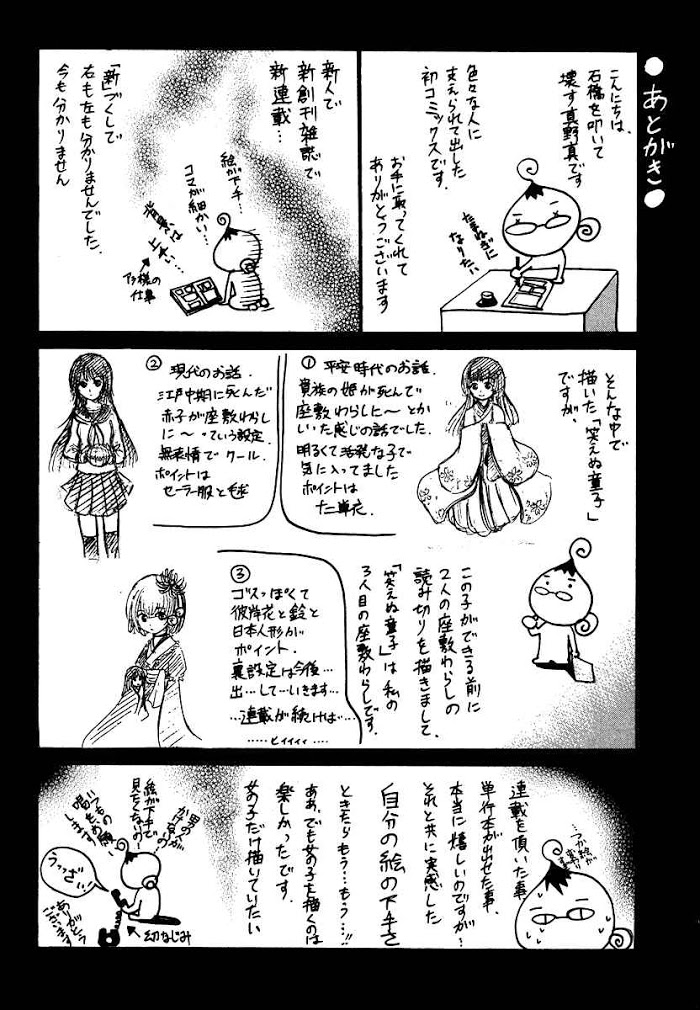 ●あとがき●
こんにちは、
石橋を叩いて
壊す真野真です
色々な人に
支えられて出した
初コミックスです。
お手に取ってくれて
ありがとうございます
たまねぎに
なりたい
新人で
新創刊雑誌で
新連載…
絵が下手…
コマが細かい…
背景は
上手い…
アシ様の
仕事
「新」づくしで
右も左も分かりませんでした。
今も分かりません
そんな中で
描いた「笑えぬ童子」
ですが、
①平安時代のお話.
貴族の姫が死んで
座敷わらしに〜とか
いった感じの話でした.
明るくて活発な子で
気に入ってました
ポイントは
十二単衣.
②現代のお話.
江戸中期に死んだ
赤子が座敷わらし
に〜っていう設定.
無表情でクール.
ポイントは
セーラー服と毬
この子ができる前に
2人の座敷わらしの
読み切りを描きまして、
「笑えぬ童子」は私の
3人目の座敷わらしです。
③
ゴスっぽくて
彼岸花と鈴と
日本人形が
ポイント.
裏設定は今後…
出…して…いきます…
…連載が続けば…
……ヒィィィィ……
連載を頂いた事、
単行本が出せた事、
本当に嬉しいのですが…
それと共に実感した
自分の絵の下手さ
ときたらもう…もう…!!
ああ、でも女の子を描くのは
楽しかったです。
女の子だけ描いていたい
絵が下手で
見たくないの〜
うっざい!
ありがとう
ございます
←幼なじみ